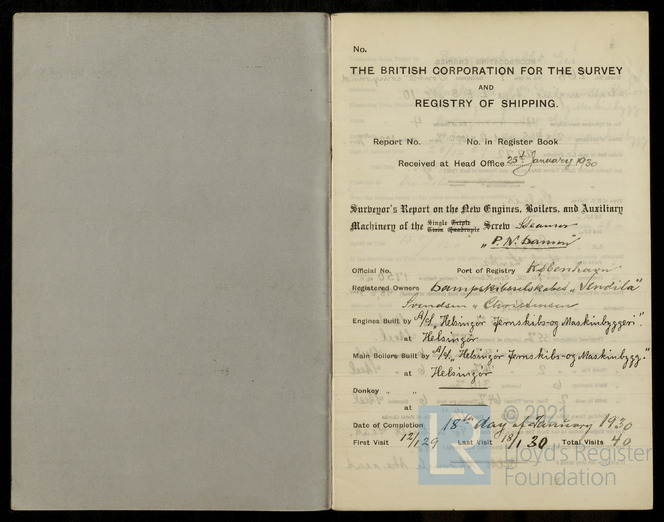 No.
THE BRITISH CORPORATION FOR THE SURVEY
AND
REGISTRY OF SHIPPING.
Report No. No. in Register Book
Received at Head Office 25th January 1930
Surveyor's Report on the New Engines, Boilers, and Auxiliary
Machinery of the Single Triple Twin Quadruple Screw Steamer
"P. N. Damm"
Official No. Port of Registry København
Registered Owners Dampskibsselskabet "Vendila"
Svendsen & Christensen
Engines Built by A/S "Helsingør Jernskibs-og Maskinbyggeri."
at Helsingør
Main Boilers Built by A/S "Helsingør Jernskibs-og Maskinbygg."
at Helsingør
Donkey " "
at
Date of Completion 18th day of January 1930
First Visit 12/1 29 Last Visit 18/1 30 Total Visits 40
© 2021
Lloyd's Register
Foundation